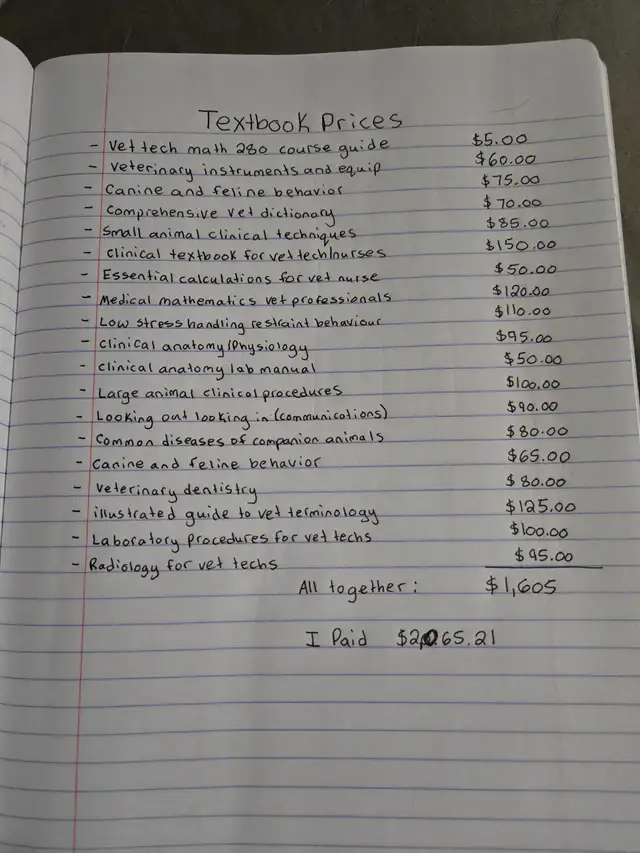 Textbook Prices
- Vet tech math 280 course guide $5.00
- Veterinary instruments and equip $60.00
- Canine and feline behavior $75.00
- Comprehensive vet dictionary $70.00
- Small animal clinical techniques $85.00
- Clinical textbook for vet tech/nurses $150.00
- Essential calculations for vet nurse $50.00
- Medical mathematics vet professionals $120.00
- Low stress handling restraint behaviour $110.00
- Clinical anatomy/Physiology $95.00
- Clinical anatomy lab manual $50.00
- Large animal clinical procedures $100.00
- Looking out looking in (communications) $90.00
- Common diseases of companion animals $80.00
- Canine and feline behavior $65.00
- Veterinary dentistry $80.00
- illustrated guide to vet terminology $125.00
- Laboratory procedures for vet techs $100.00
- Radiology for vet techs $95.00
All together: $1,605
I Paid $2,065.21